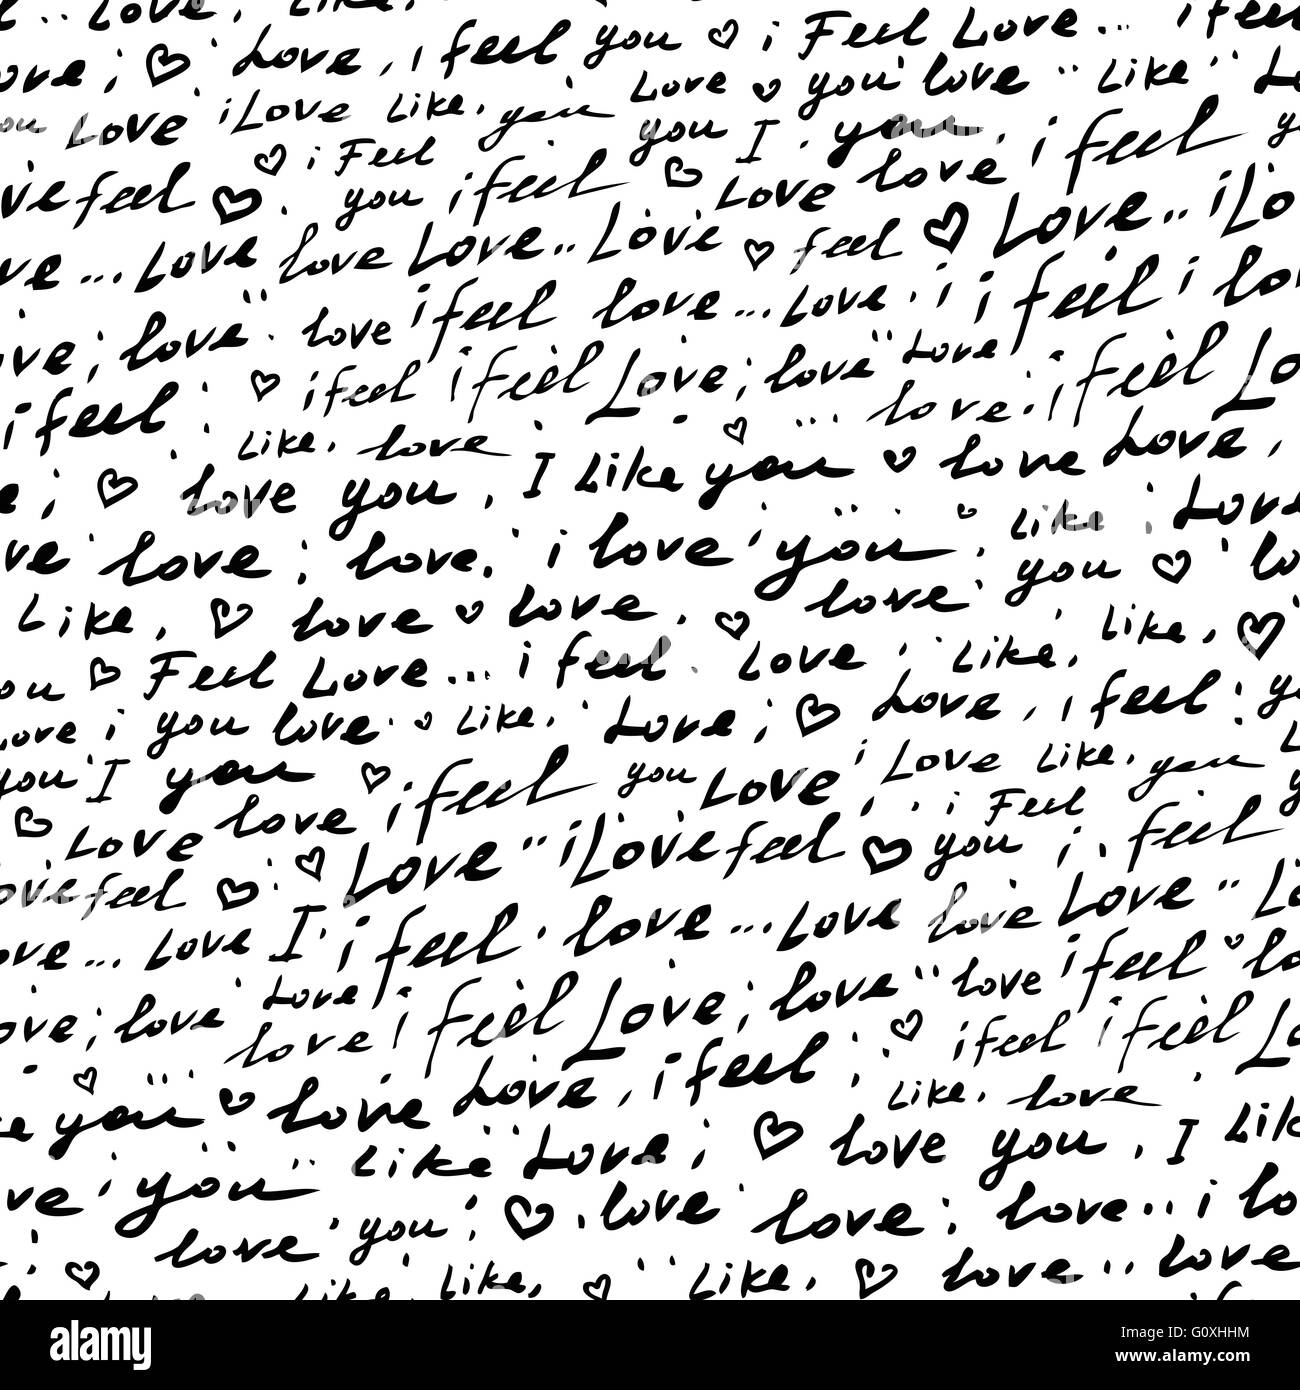 Love, Like,
ove; Love, i feel you i Feel Love... i feel
you Love i Love Like, you Love you love Like Lo
i Feel you I. you,
ove feel. you i feel Love love i feel y
ve... Love love Love Love.. Love feel Love.. i Lo
ove; love. love i feel love... Love. i i feel i lo
i feel; i feel i feel Love; love Love i feel Lo
Like, love love.
e; love you, I Like you love Love,
ove love; love, i love you, Like Love
Like, love love, love you lo
you Feel Love... i feel. Love; Like, Like,
Love i you love Like, Love; Love, i feel: y
you I you i feel you Love, i Love Like, you L
Love love Love i Love feel you i Feel i. feel y
ove feel I. i feel. love... Love love Love Lo
ove... Love i feel Love; love love i feel lo
ove; love Love i feel i feel Lo
love Love, i feel; Like, love
ke you love love you, I Lik
ve you Like Love; love love; love.. i lo
love you; Like, Like, love.. love
alamy stock photo
G0XHHM
www.alamy.com